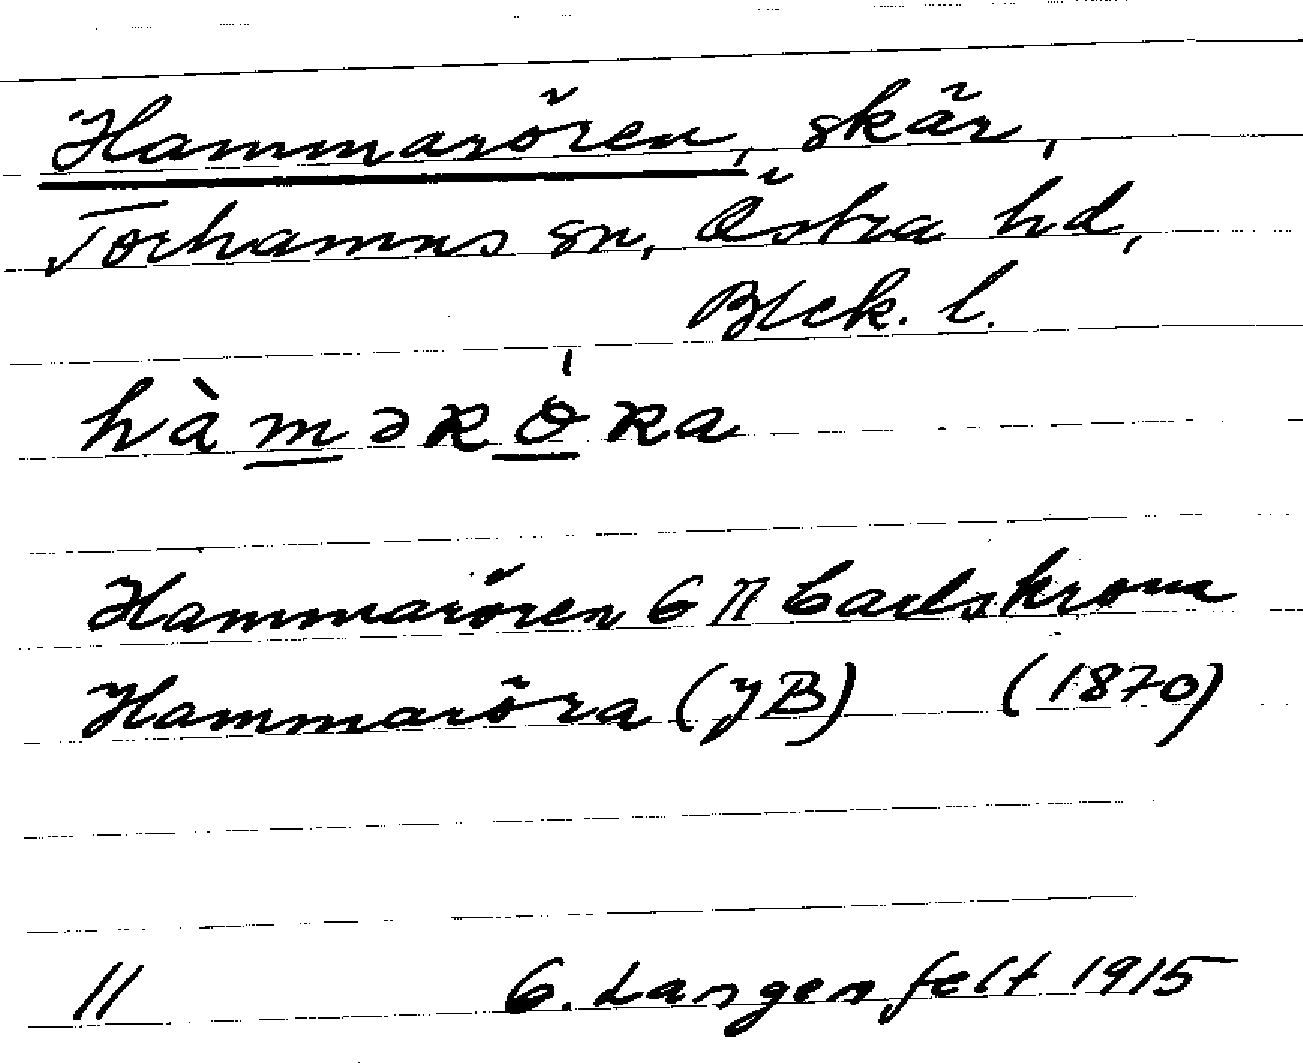 Hammarören, skär,
Torhamns sn, Östra hd,
Blek. l.
hàməRөRa
Hammarören G II Carlskrona
Hammaröra (JB) (1870)
11 G. Langenfelt 1915